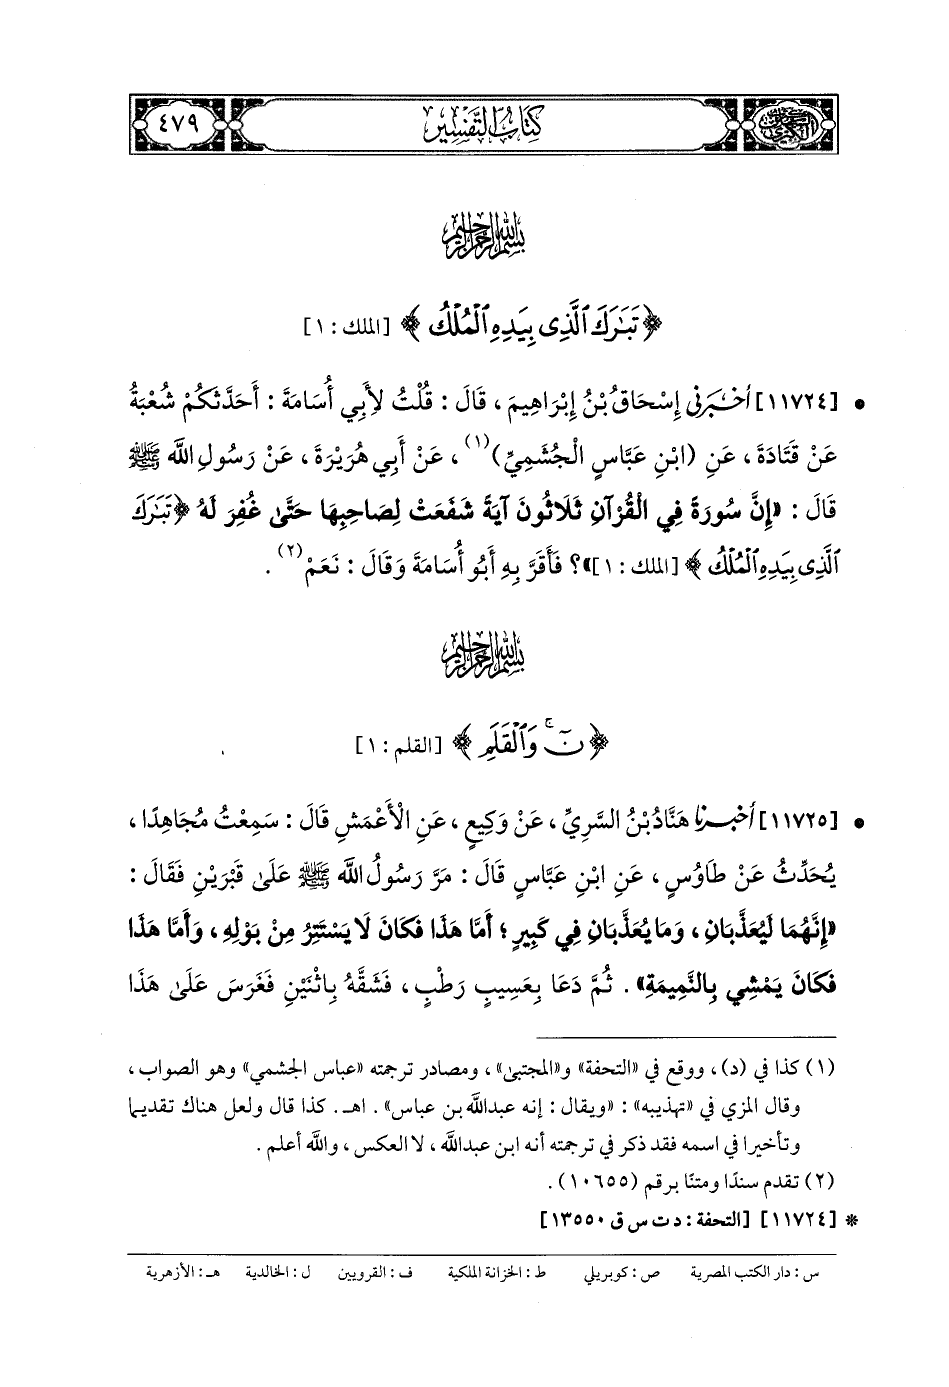 السنن الكبرى
كتاب التفسير
٤٧٩
بسم الله الرحمن الرحيم
﴿تَبَٰرَكَ ٱلَّذِى بِيَدِهِ ٱلْمُلْكُ﴾ [الملك : ١]
• [١١٧٢٤] أَخْبَرَنِي إِسْحَاقُ بْنُ إِبْرَاهِيمَ، قَالَ : قُلْتُ لِأَبِي أُسَامَةَ : أَحَدَّثَكُمْ شُعْبَةُ
عَنْ قَتَادَةَ، عَنِ (ابْنِ عَبَّاسٍ الْجُشَمِيِّ)(١)، عَنْ أَبِي هُرَيْرَةَ، عَنْ رَسُولِ اللَّهِ ﷺ
قَالَ : «إِنَّ سُورَةً فِي الْقُرْآنِ ثَلَاثُونَ آيَةً شَفَعَتْ لِصَاحِبِهَا حَتَّىٰ غُفِرَ لَهُ ﴿تَبَٰرَكَ
ٱلَّذِى بِيَدِهِ ٱلْمُلْكُ﴾ [الملك : ١]»؟ فَأَقَرَّ بِهِ أَبُو أُسَامَةَ وَقَالَ : نَعَمْ(٢).
بسم الله الرحمن الرحيم
﴿نٓ ۚ وَٱلْقَلَمِ﴾ [القلم : ١]
• [١١٧٢٥] أَخْبَرَنَا هَنَّادُ بْنُ السَّرِيِّ، عَنْ وَكِيعٍ، عَنِ الْأَعْمَشِ قَالَ : سَمِعْتُ مُجَاهِدًا،
يُحَدِّثُ عَنْ طَاوُسٍ، عَنِ ابْنِ عَبَّاسٍ قَالَ : مَرَّ رَسُولُ اللَّهِ ﷺ عَلَىٰ قَبْرَيْنِ فَقَالَ :
«إِنَّهُمَا لَيُعَذَّبَانِ، وَمَا يُعَذَّبَانِ فِي كَبِيرٍ؛ أَمَّا هَذَا فَكَانَ لَا يَسْتَتِرُ مِنْ بَوْلِهِ، وَأَمَّا هَذَا
فَكَانَ يَمْشِي بِالنَّمِيمَةِ». ثُمَّ دَعَا بِعَسِيبٍ رَطْبٍ، فَشَقَّهُ بِاثْنَيْنِ فَغَرَسَ عَلَىٰ هَذَا
(١) كذا في (د)، ووقع في «التحفة» و«المجتبىٰ»، ومصادر ترجمته «عباس الجشمي» وهو الصواب،
وقال المزي في «تهذيبه» : «ويقال : إنه عبدالله بن عباس». اهـ. كذا قال ولعل هناك تقديما
وتأخيرا في اسمه فقد ذكر في ترجمته أنه ابن عبدالله، لا العكس، والله أعلم.
(٢) تقدم سندًا ومتنًا برقم (١٠٦٥٥).
* [١١٧٢٤] [التحفة : د ت س ق ١٣٥٥٠]
س : دار الكتب المصرية ص : كوبريلي ط : الخزانة الملكية ف : القرويين ل : الخالدية هـ : الأزهرية